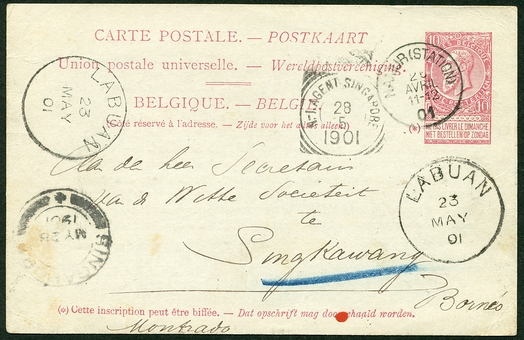 CARTE POSTALE. — POSTKAART
Union postale universelle. — Wereldpostvereeniging.
BELGIQUE. — BELGI
(Côté réservé à l'adresse. — Zijde voor het adres alleen)
10
10
NE PAS LIVRER LE DIMANCHE
NIET BESTELLEN OP ZONDAG
(STATION)
AVRIL
11-12
01
N.I. AGENT SINGAPORE
28
5
1901
LABUAN
23
MAY
01
LABUAN
23
MAY
01
SINGA
MY 28
1901
Aan den heer Secretaris
van de Witte Societeit
te
Singkawang
Borneo
(o) Cette inscription peut être biffée. — Dat opschrift mag doorhaald worden.
Montrado